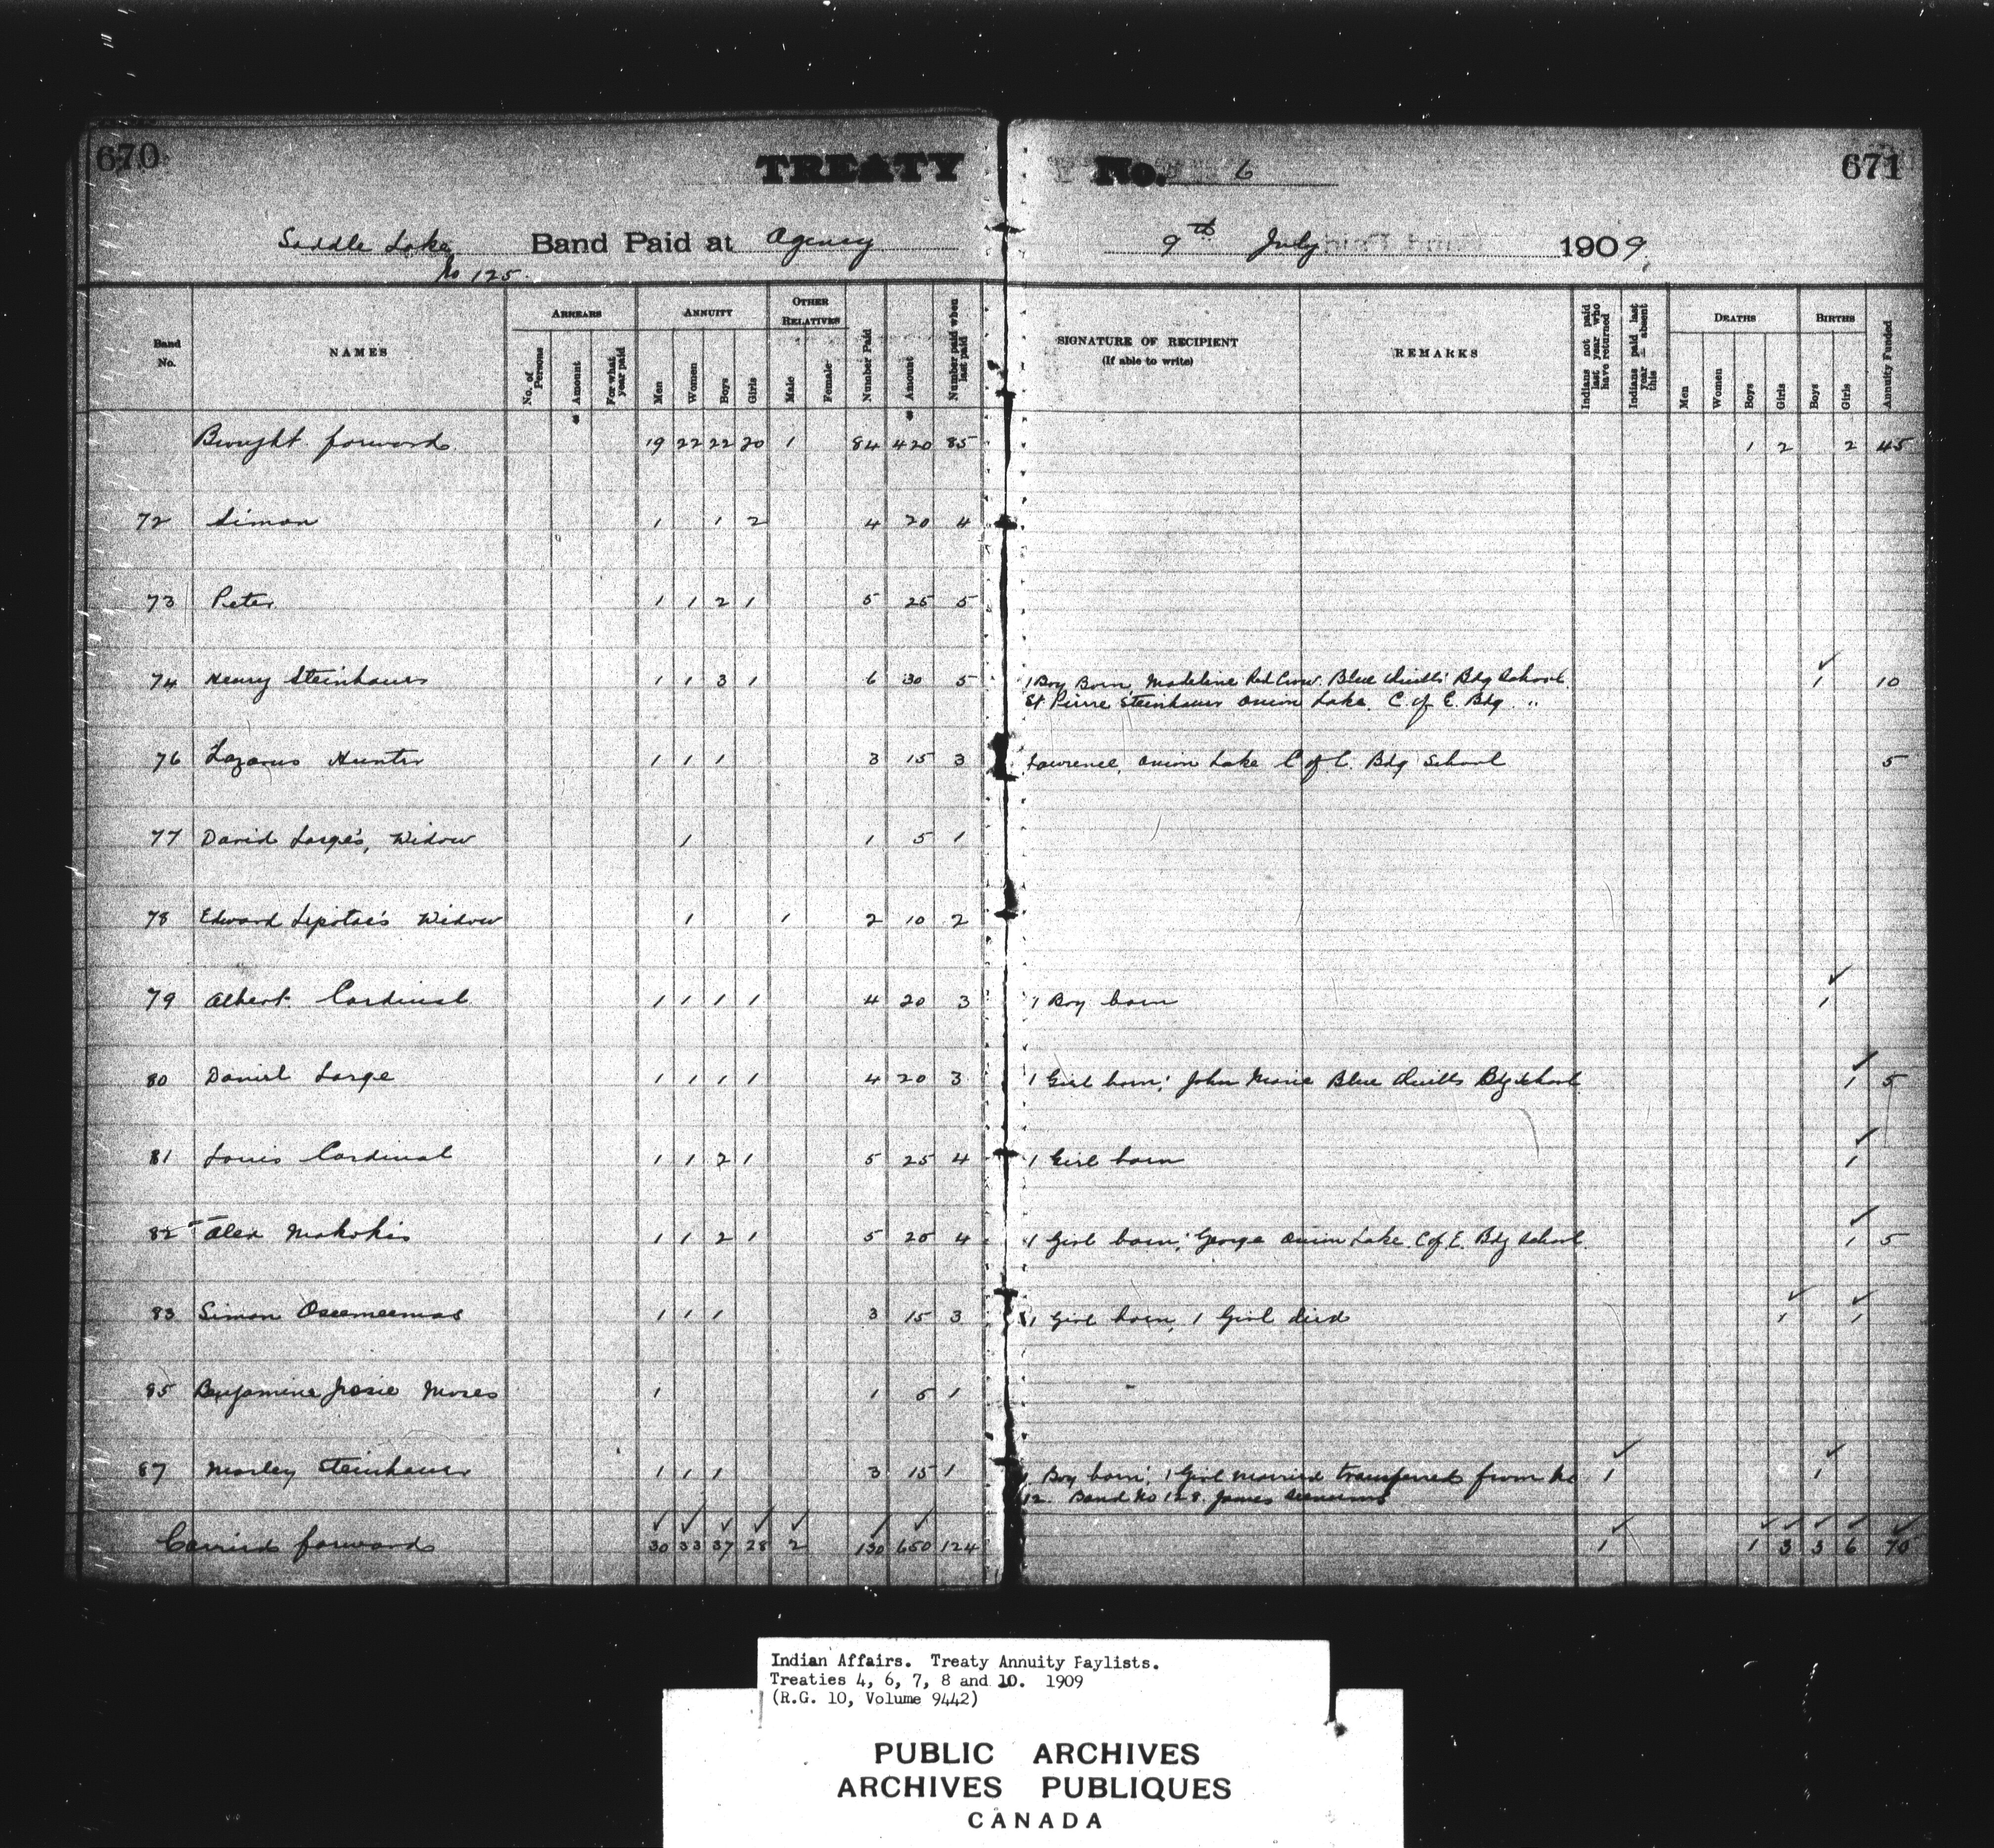 670
TREATY No. 6
671
Saddle Lake Band Paid at Agency 9th July 1909
No 125.
Band No. NAMES ARREARS ANNUITY OTHER RELATIVES Number Paid Amount Number paid when last paid SIGNATURE OF RECIPIENT (If able to write) REMARKS Indians not paid last year who have returned Indians paid last year absent this DEATHS BIRTHS Annuity Funded
No. of Persons Amount For what year paid Men Women Boys Girls Male Female Men Women Boys Girls Boys Girls
Brought forward 19 22 22 20 1 84 420 85 1 2 2 45
72 Simon 1 1 2 4 20 4
73 Peter 1 1 2 1 5 25 5
74 Henry Steinhauer 1 1 3 1 6 30 5 1 Boy Born, Madeline Red Crow. Blue Quills Bdg School. 1 10
St Pierre Steinhauer Onion Lake. C. of E. Bdg "
76 Lazarus Hunter 1 1 1 3 15 3 Lawrence, Onion Lake C of E. Bdg School 5
77 David Large's, Widow 1 1 5 1
78 Edward Widow 1 1 2 10 2
79 Albert Cardinal 1 1 1 1 4 20 3 1 Boy born 1
80 Daniel Large 1 1 1 1 4 20 3 1 Girl born; John Marie Blue Quills Bdg School 1 5
81 Louis Cardinal 1 1 2 1 5 25 4 1 Girl born 1
82 Alex Makokis 1 1 2 1 5 25 4 1 Girl born; George Onion Lake. C of E. Bdg School. 1 5
83 Simon 1 1 1 3 15 3 1 Girl born, 1 Girl died 1 1
85 Benjamine Moses 1 1 5 1
87 Morley Steinhauer 1 1 1 3 15 1 1 Boy born; 1 Girl married transferred from No 1 1
12. Band No 128. James
Carried forward 30 33 37 28 2 130 650 124 1 1 3 3 6 70
Indian Affairs. Treaty Annuity Paylists.
Treaties 4, 6, 7, 8 and 10. 1909
(R.G. 10, Volume 9442)
PUBLIC ARCHIVES
ARCHIVES PUBLIQUES
CANADA